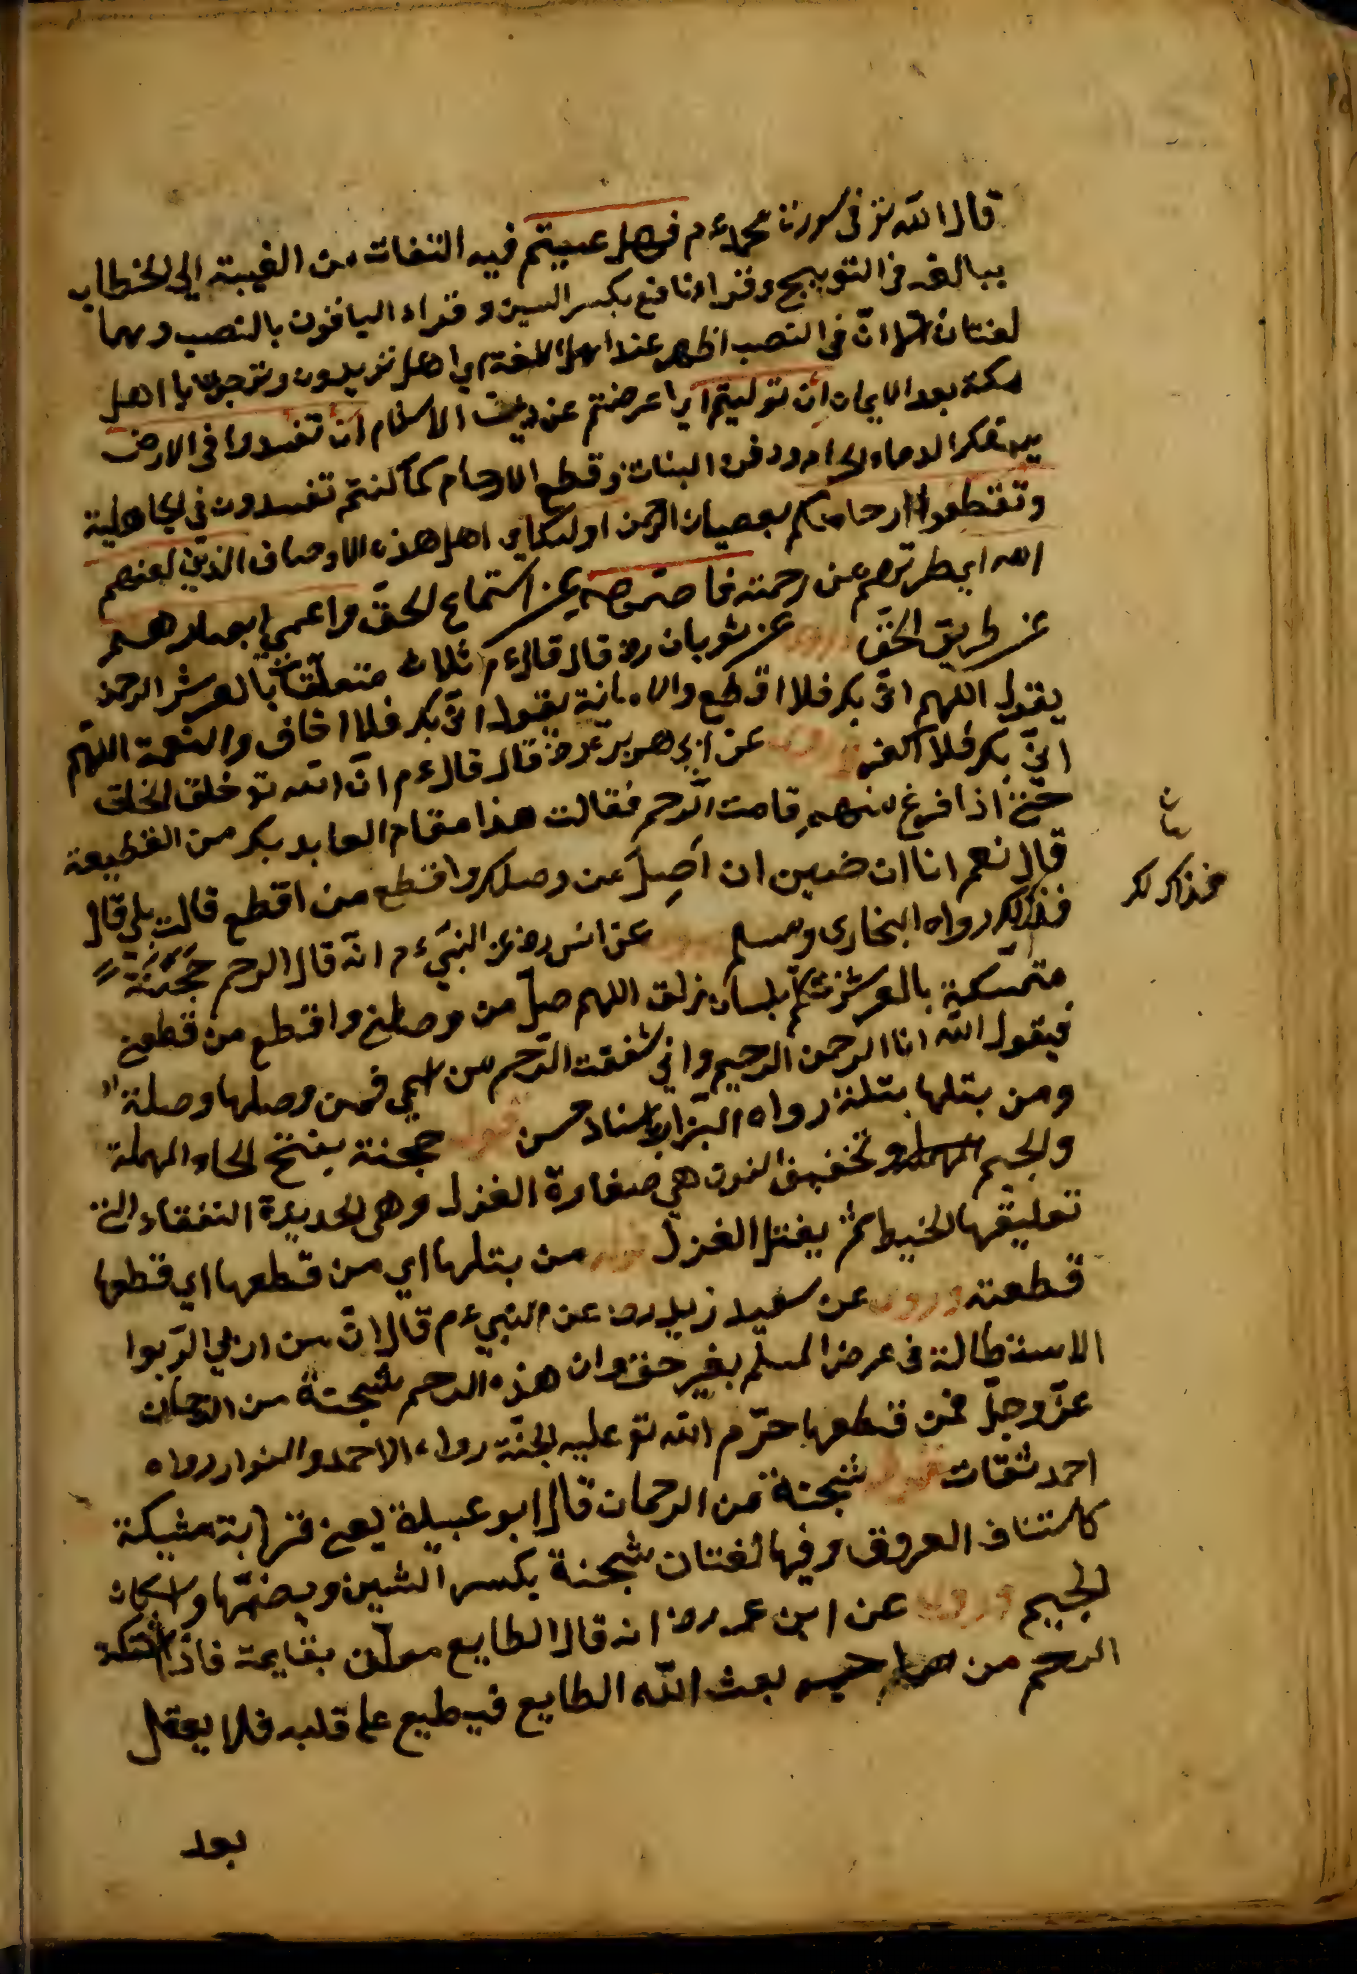 قال الله تع في سورة محمد ءم فهل عسيتم فيه التفات من الغيبة الي الخطاب
مبالغة في التوبيخ وقراء نافع بكسر السين وقراء الباقون بالنصب وهما
لغتان الا ان في النصب اظهر عند اهل اللغة اي اهل تريدون وترجون يا اهل
مكة بعد الايمان ان توليتم اي اعرضتم عن دين الاسلام ان تفسدوا في الارض
بسفك الدماء الحرام ودفن البنات وقطع الارحام كما كنتم تفسدون في الجاهلية
وتقطعوا ارحامكم بعصيان الرحمن اولئك اي اهل هذه الاوصاف الذين لعنهم
الله اي طردهم عن رحمته فاصمهم عن استماع الحق واعمي ابصارهم
عن طريق الحق وروي عن ثوبان رض قال قال ءم ثلاث متعلقات بالعرش الرحم
يقول اللهم اني بك فلا اقطع والامانة يقول اني بك فلا اخاف والنعمة اللهم
اني بك فلا اكفر وروي عن ابي هريرة رض قال قال ءم ان الله تع خلق الخلق
حتي اذا فرغ منهم قامت الرحم فقالت هذا مقام العابد بك من القطيعة
قال نعم اما ان ضين ان اصل من وصلك واقطع من اقطع قالت بلي قال
فذلك رواه البخاري ومسلم وروي عن انس رض عن النبي ءم انه قال الرحم حجنة
متمسكة بالعرش تكلم بلسان زلق اللهم صل من وصلني واقطع من قطعني
فيقول الله انا الرحمن الرحيم واني شققت الرحم من اسمي فمن وصلها وصلته
ومن بتلها بتلته رواه البزار باسناد حسن قوله حجنة بفتح الحاء المهملة
والجيم وتخفيف النون هي صنارة الغزل وهي الحديدة النفقاء التي
تعليقها الخيط ثم يفتل الغزل قوله من بتلها اي من قطعها اي قطعها
قطعته وروي عن سعيد زيد رض عن النبي ءم قال ان من اربي الربوا
الاستطالة في عرض المسلم بغير حق وان هذه الرحم شجنة من الرحمان
عز وجل فمن قطعها حرم الله تع عليه الجنة رواه الاحمد والبزار رواه
احمد ثقات قوله شجنة من الرحمان قال ابو عبيدة يعني قرابة مشبكة
كاشتناف العروق وفيها لغتان شجنة بكسر الشين وبضمها واسكان
الجيم وروي عن ابن عمر رض انه قال الطابع معلق بقايمة فاذا اشتكت
الرحم من صاحبه بعث الله الطابع فيطبع علي قلبه فلا يعقل
بعد
فذاك لك